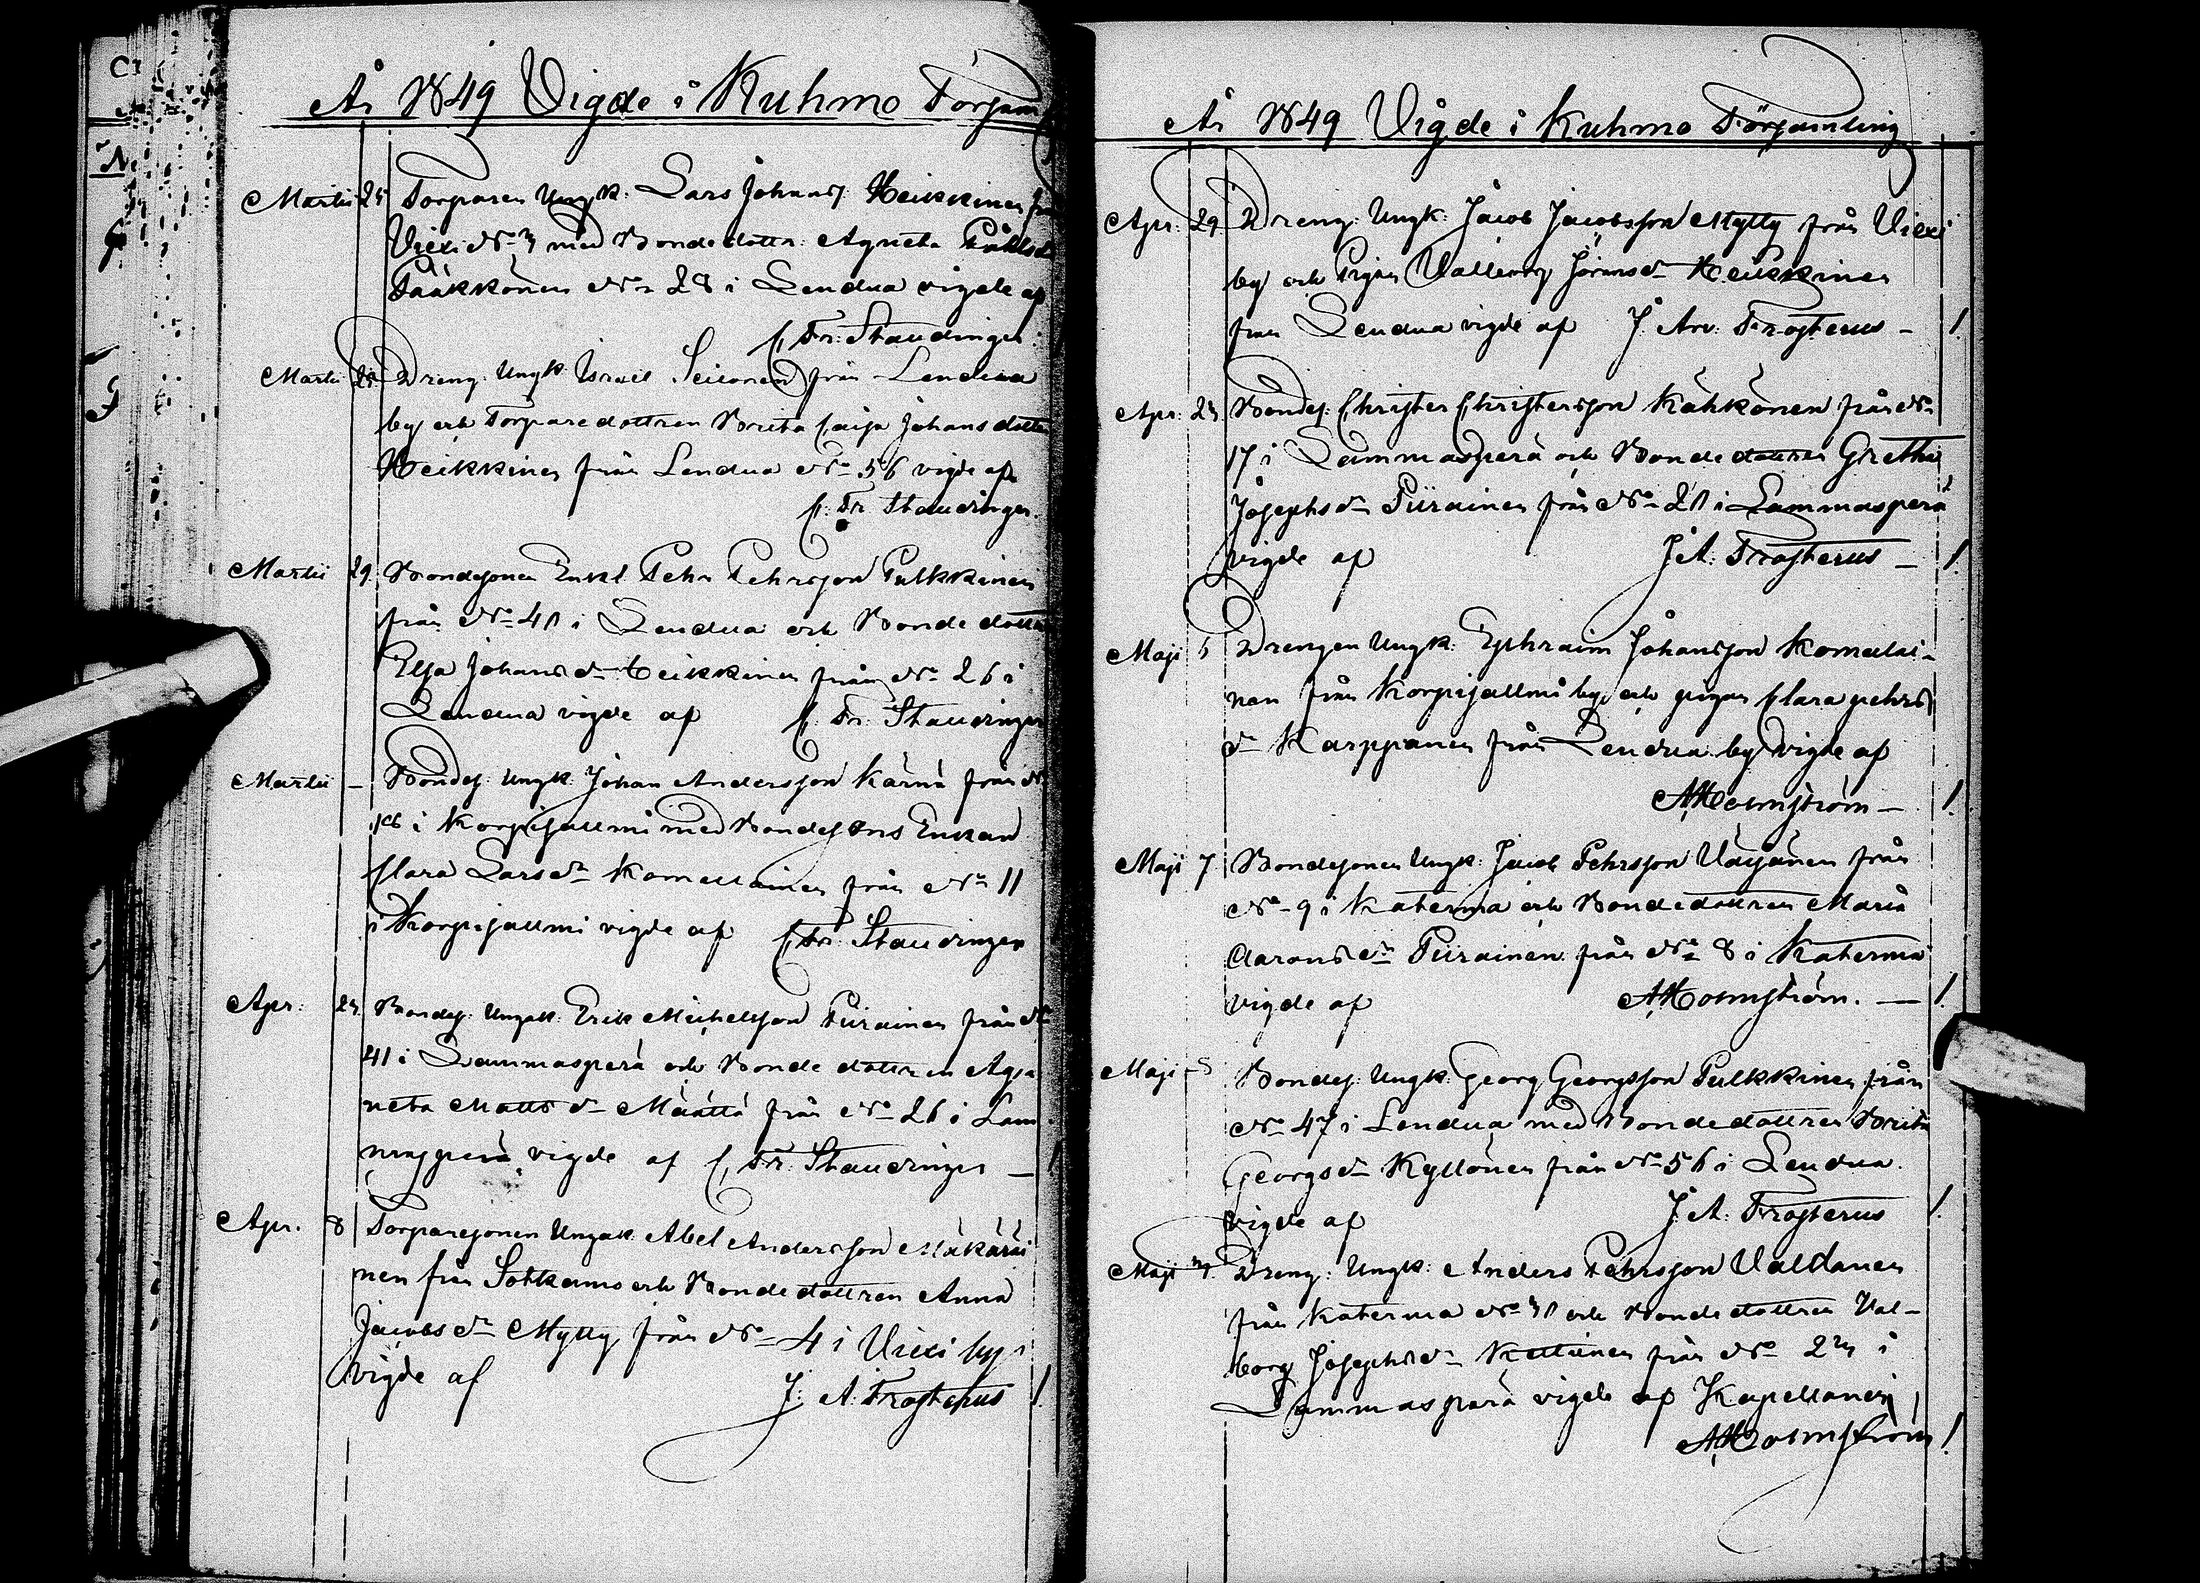 År 1849 Vigde i Kuhmo Församl
Martii 25 Torparen Ungk: Lars Johanss: Heikkinen från
Viexi No 3 med Bondedottr: Agneta Påhlsd
Pääkkönen No 28 i Lendua vigde af
C. Fr: Staudinger
Martii 25 Dreng: Ungk: Israel Seilonen från Lendua
by och Torparedottren Brita Caisa Johansdotter
Heikkinen från Lendua No 56 vigde af
C. Fr. Staudinger.
Martii 29 Bondesonen Enkl Pehr Pehrsson Pulkkinen
från No 41 i Lendua och Bondedottren
Elsa Johansdr Heikkinen från No 26 i
Lendua vigde af C. Fr: Staudinger
Martii – Bondes: Ungk: Johan Andersson Kärnä från No
i Korpisallmi med Bondesons Enkan
Clara Larsdr Komulainen från No 11
i Korpisallmi vigde af C. Fr: Staudinger
Apr: Bondes: Ungk: Erik Michelsson Piirainen från No
41 i Lammasperä och Bondedottren Ag-
neta Mattsdr Määttä från No 26 i Lam
masperä vigde af C. Fr: Staudinger –
Apr. 8 Torparesonen Ungk. Abel Andersson Mäkäräi
nen från Sotkamo och Bondedottren Anna
Jacobsdr Mytty från No 4 i Viexi by
vigde af J: A: Frosterus /.
År 1849 Vigde i Kuhmo Församling
Apr: 29 Dreng: Ungk: Jacob Jacobsson Mytty från Viexi
by och Pigan Valborg Jöransdr Heikkinen
från Lendua vigde af J. Arv: Frosterus – /.
Apr: Bondes: Christer Christersson Kähkönen från No
17 i Lammasperä och Bondedottren Gretha
Josephsdr Piirainen från No 21 i Lammasperä
vigde af J. A: Frosterus – /.
Maji Drengen Ungk: Ephraim Johansson Komulai-
nen från Korpisallmi by och pigan Clara pehrs
dr Karppanen från Lendua by vigde af
AHolmström – /.
Maji 7 Bondesonen Ungk: Jacob Pehrsson Väisänen från
No 9 i Katerma och Bondedottren Maria
Aaronsdr Piirainen från No 8 i Katerma
vigde af AHolmström. – /.
Maji Bondes: Ungk: Georg Georgsson Pulkkinen från
No 47 i Lendua med Bondedottren Brita
Georgsdr Kyllönen från No 56 i Lendua.
vigde af J. A: Frosterus /.
Maji Dreng: Ungk: Anders Pehrsson Valdanen
från Katerma No 31 och Bondedottren Val-
borg Josephsdr från No i
Lammasperä vigde af Kapellanen
AHolmström /.